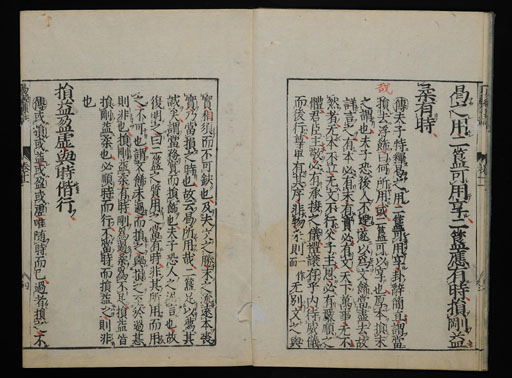 曷之用二簋可用享二簋應有時損剛益
柔有時
傳夫子特釋曷之用二簋可用享卦辭簡直謂當
損去浮飾曰何所用哉二簋可以享也厚本損末
之謂也夫子恐後人不達遂以為文飾當盡去故
詳言之有本必有末有實必有文天下萬事无不
然者无本不立无文不行父子主恩必有嚴順之
體君臣主敬必有承接之儀禮讓存乎内待威儀
而後行尊卑有其序非物采則无别文之與
實相須而不可缺也及夫文之勝末之流遠本喪
實乃當損之時也故云曷所用哉二簋足以薦其
誠矣謂當務實而損飾也夫子恐人之泥言也故
復明之曰二簋之質用之當有時非其所用而用
之不可也謂文飾未過而損之與損之至於過甚
則非也損剛益柔有時剛為過柔為不足損益皆
損剛益柔也必順時而行不當時而損益之則非
也
損益盈虛與時偕行
傳或損或益或盈或虛唯隨時而已過者損之不